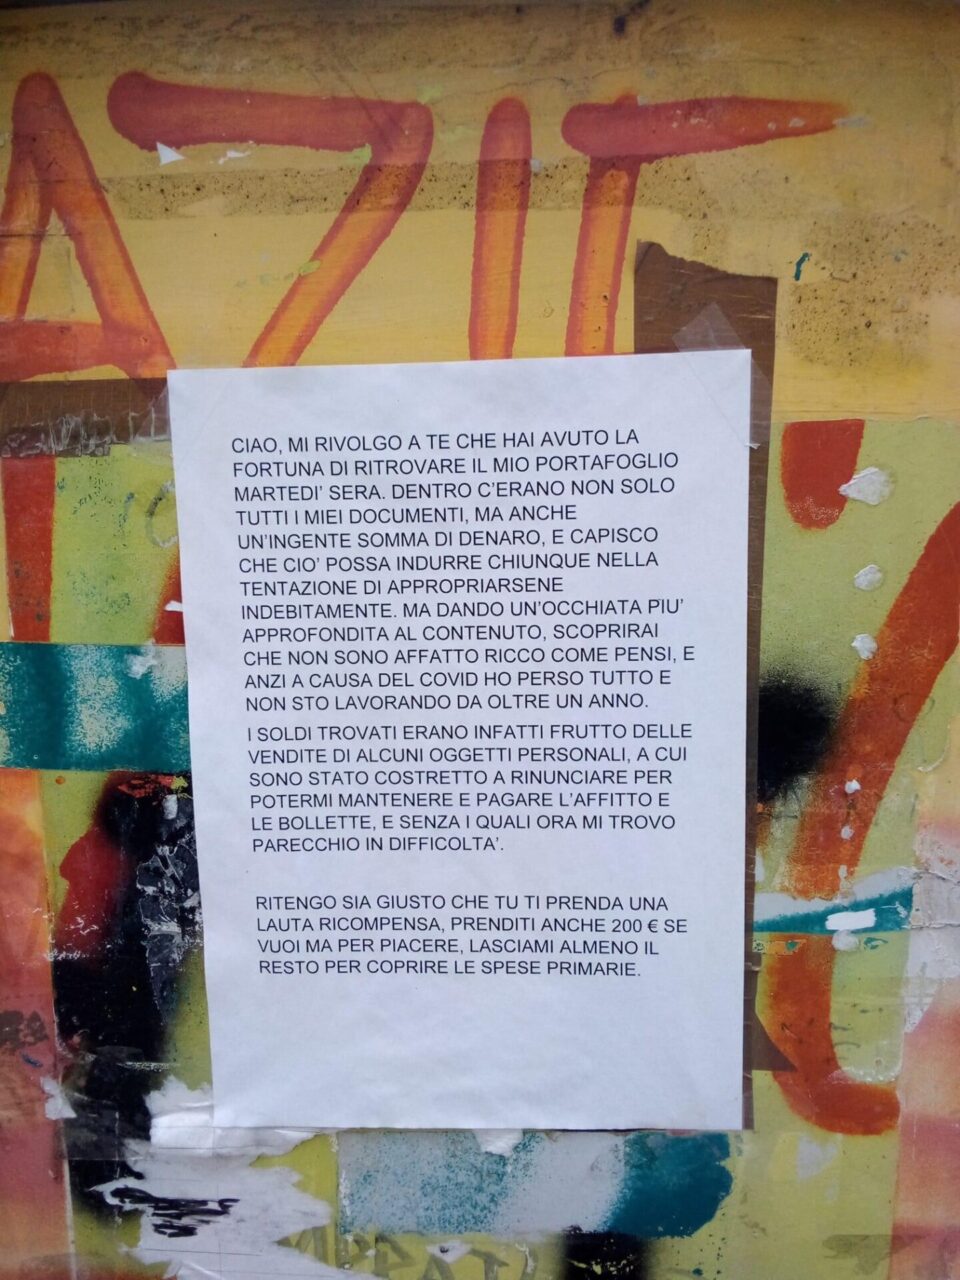 AZIT
CIAO, MI RIVOLGO A TE CHE HAI AVUTO LA
FORTUNA DI RITROVARE IL MIO PORTAFOGLIO
MARTEDI' SERA. DENTRO C'ERANO NON SOLO
TUTTI I MIEI DOCUMENTI, MA ANCHE
UN'INGENTE SOMMA DI DENARO, E CAPISCO
CHE CIO' POSSA INDURRE CHIUNQUE NELLA
TENTAZIONE DI APPROPRIARSENE
INDEBITAMENTE. MA DANDO UN'OCCHIATA PIU'
APPROFONDITA AL CONTENUTO, SCOPRIRAI
CHE NON SONO AFFATTO RICCO COME PENSI, E
ANZI A CAUSA DEL COVID HO PERSO TUTTO E
NON STO LAVORANDO DA OLTRE UN ANNO.
I SOLDI TROVATI ERANO INFATTI FRUTTO DELLE
VENDITE DI ALCUNI OGGETTI PERSONALI, A CUI
SONO STATO COSTRETTO A RINUNCIARE PER
POTERMI MANTENERE E PAGARE L'AFFITTO E
LE BOLLETTE, E SENZA I QUALI ORA MI TROVO
PARECCHIO IN DIFFICOLTA'.
RITENGO SIA GIUSTO CHE TU TI PRENDA UNA
LAUTA RICOMPENSA, PRENDITI ANCHE 200 € SE
VUOI MA PER PIACERE, LASCIAMI ALMENO IL
RESTO PER COPRIRE LE SPESE PRIMARIE.